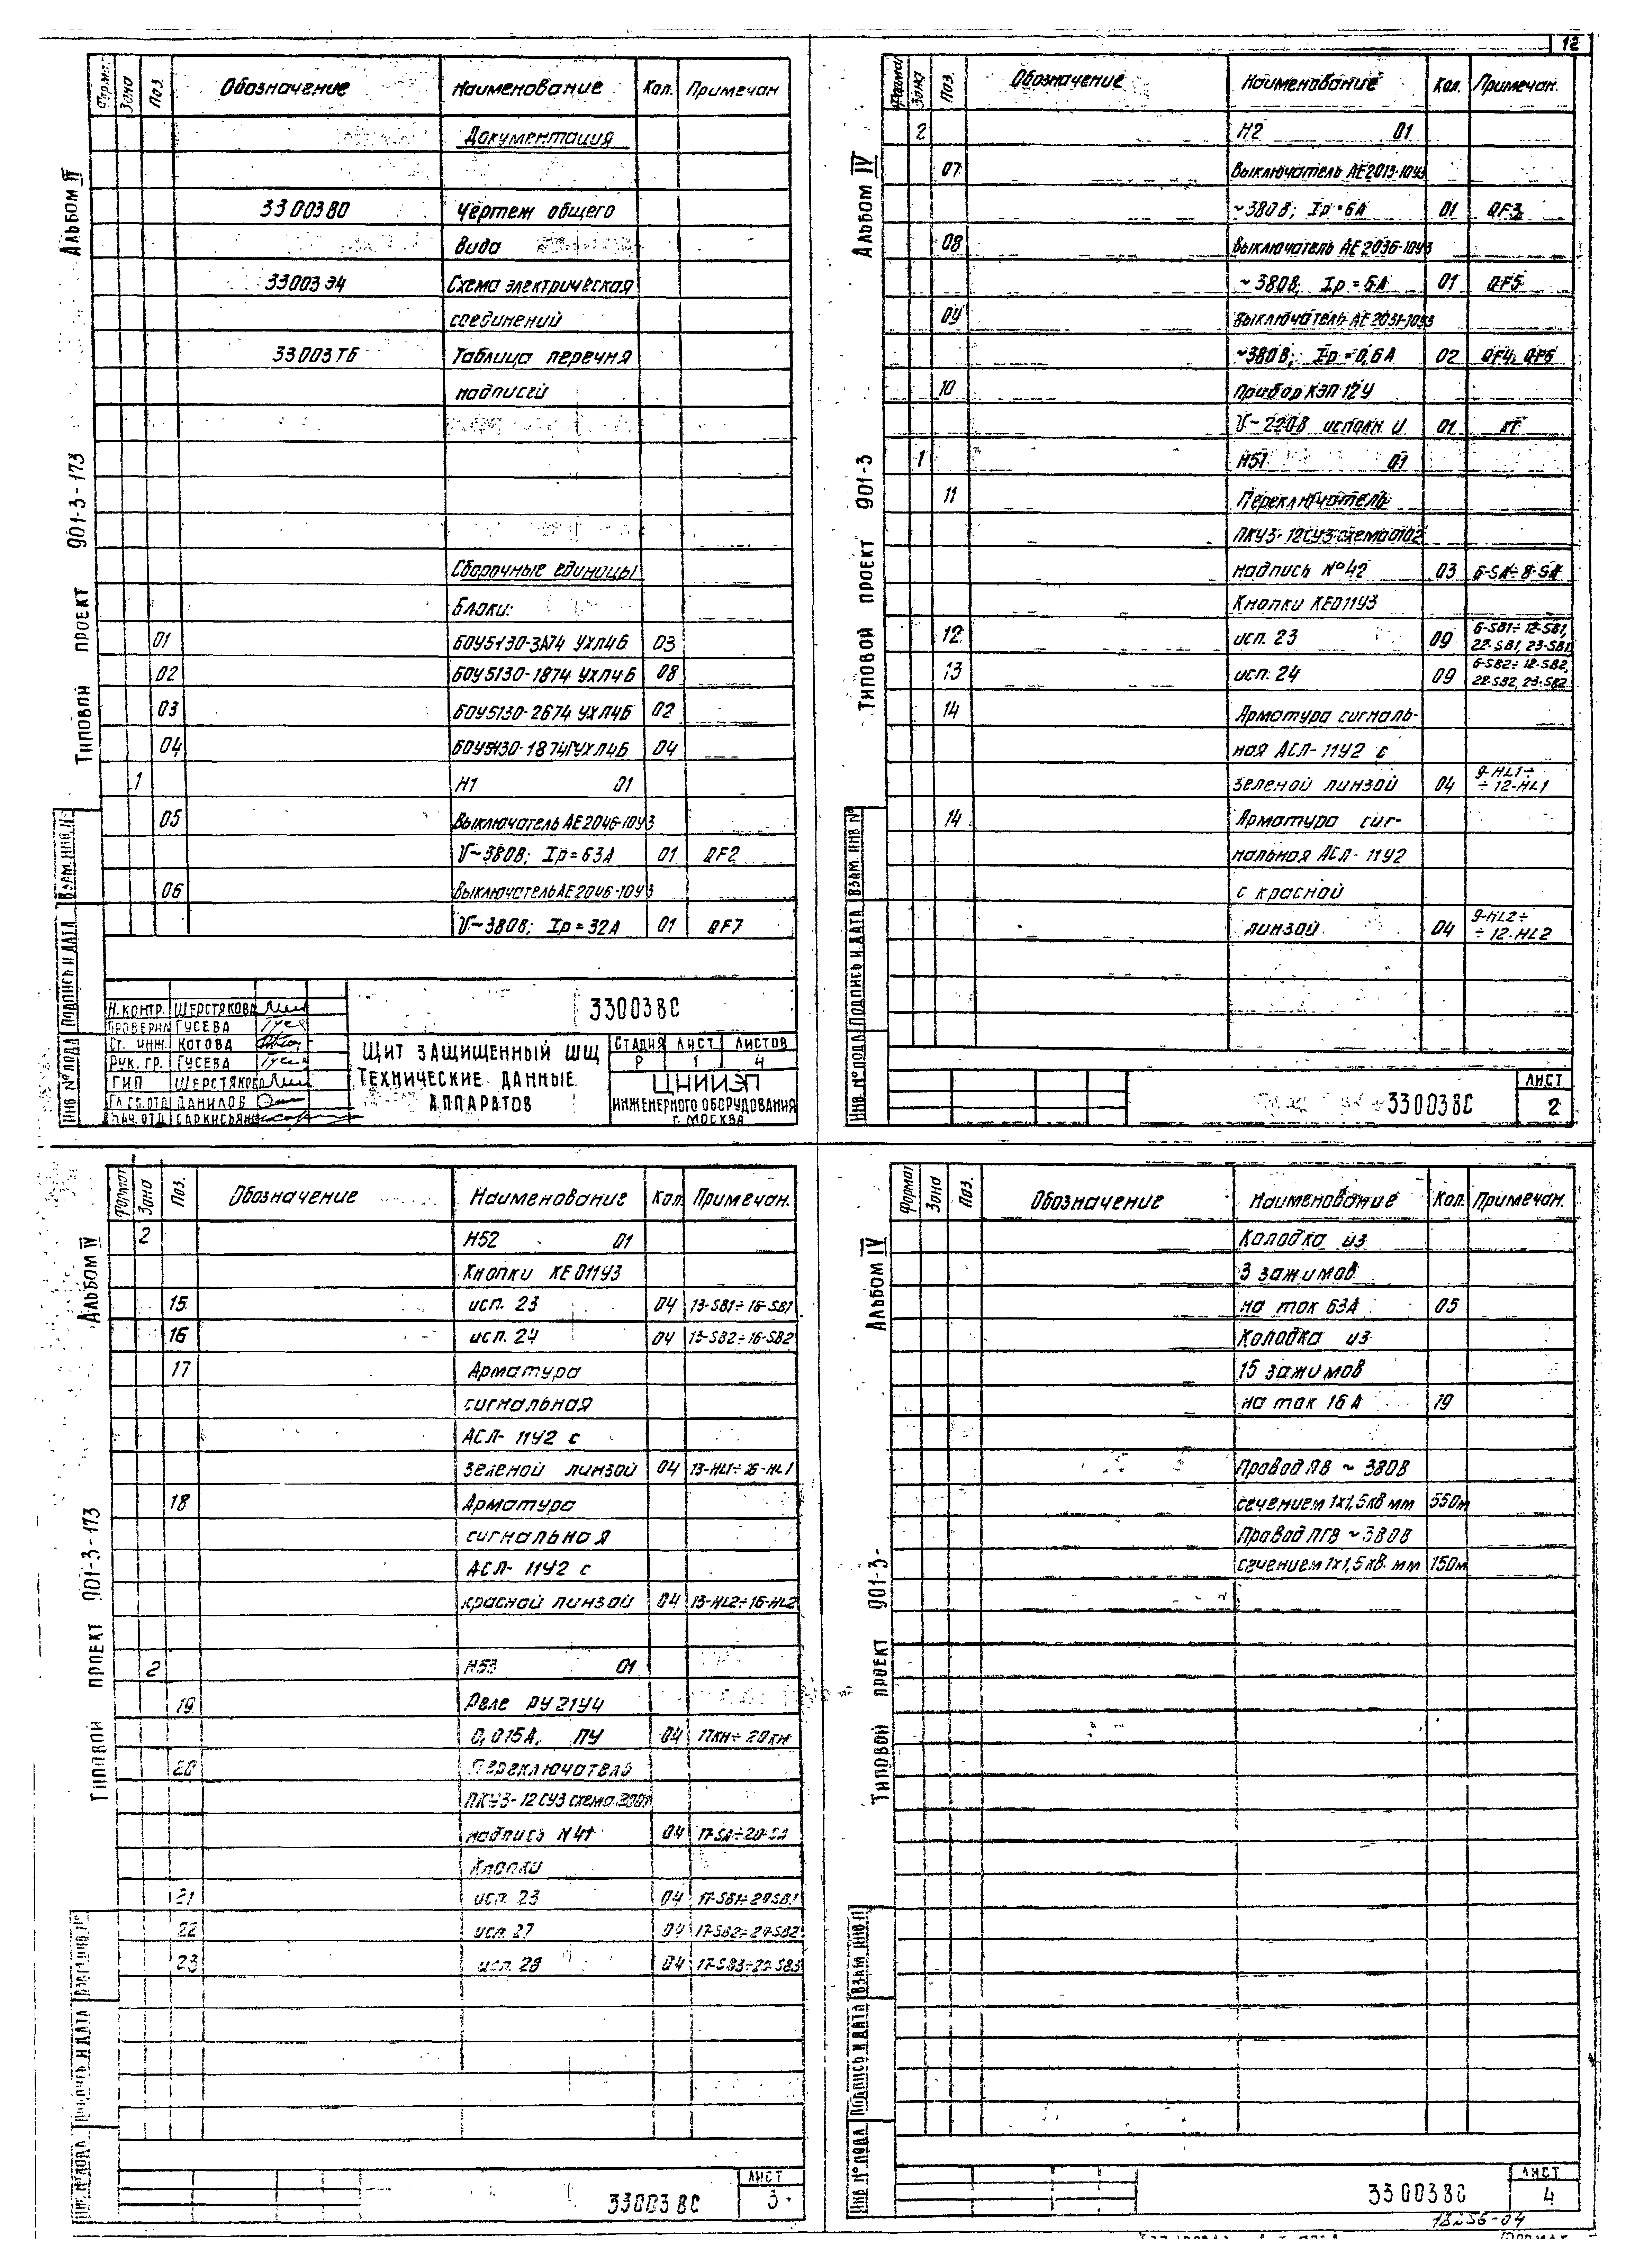 12
Формат Зона Поз. Обозначение Наименование Кол. Примечан
Документация
33003ВО Чертеж общего
вида
33003Э4 Схема электрическая
соединений
33003Т6 Таблица перечня
надписей
Сборочные единицы
Блоки:
01 БОУ5130-3А74 УХЛ4Б 03
02 БОУ5130-1874 УХЛ4Б 08
03 БОУ5130-2674 УХЛ4Б 02
04 БОУ5130-1874ГУХЛ4Б 04
1 Н1 01
05 Выключатель АЕ2046-10У3
U~380В; Iр=63А 01 QF2
06 Выключатель АЕ2046-10У3
U~380В; Iр=32А 01 QF7
Альбом IV
Типовой проект 901-3-173
Инв № подл Подпись и дата Взам. инв. №
33003ВС
Н.контр. Шерстякова
Проверил Гусева
Ст. инж. Котова
Рук. гр. Гусева
ГИП Шерстякова
Гл.сп.отд Данилов
Нач.отд Саркисьян
Щит защищенный ШЩ
Технические данные
аппаратов
Стадия Лист Листов
Р 1 4
ЦНИИЭП
инженерного оборудования
г. Москва
Формат Зона Поз. Обозначение Наименование Кол. Примечан.
2 Н2 01
07 Выключатель АЕ2013-10У3
~380В; Iр=6А 01 QF3
08 Выключатель АЕ2036-10У3
~380В; Iр=6А 01 QF5
09 Выключатель АЕ2031-10У3
~380В; Iр=0,6А 02 QF4, QF6
10 Прибор КЭП12У
U~220В исполн. И 01 КТ
1 Н51 01
11 Переключатель
ПКУ3-12СУ3 схема 0102
надпись №42 03 6-SA÷8-SA
Кнопки КЕ011У3
12 исп. 23 09 6-SB1÷12-SB1,
22-SB1, 23-SB1
13 исп. 24 09 6-SB2÷12-SB2,
22-SB2, 23-SB2
14 Арматура сигналь-
ная АСЛ-11У2 с
зеленой линзой 04 9-HL1÷
÷12-HL1
14 Арматура сиг-
нальная АСЛ-11У2
с красной
линзой 04 9-HL2÷
÷12-HL2
Альбом IV
Типовой проект 901-3
Инв № подл Подпись и дата Взам. инв №
33003ВС
Лист
2
Формат Зона Поз. Обозначение Наименование Кол. Примечан.
2 Н52 01
Кнопки КЕ011У3
15 исп. 23 04 13-SB1÷16-SB1
16 исп. 24 04 13-SB2÷16-SB2
17 Арматура
сигнальная
АСЛ-11У2 с
зеленой линзой 04 13-HL1÷16-HL1
18 Арматура
сигнальная
АСЛ-11У2 с
красной линзой 04 13-HL2÷16-HL2
2 Н53 01
19 Реле РУ21У4
0,015А, ПУ 04 17КН÷20КН
20 Переключатель
ПКУ3-12СУ3 схема 3001
надпись N41 04 17-SA÷20-SA
Кнопки
21 исп. 23 04 17-SB1÷20SB1
22 исп. 27 04 17-SB2÷20-SB2
23 исп. 28 04 17-SB3÷20-SB3
Альбом IV
Типовой проект 901-3-173
Инв № подл Подпись и дата Взам. инв. №
33003ВС
Лист
3
Формат Зона Поз. Обозначение Наименование Кол. Примечан.
Колодка из
3 зажимов
на ток 63А 05
Колодка из
15 зажимов
на ток 16А 19
Провод ПВ ~380В
сечением 1х1,5кв мм 550м
Провод ПГВ ~380В
сечением 1х1,5кв. мм 150м
Альбом IV
Типовой проект 901-3-
Инв № подл Подпись и дата Взам. инв. №
33003ВС
Лист
4
18256-04